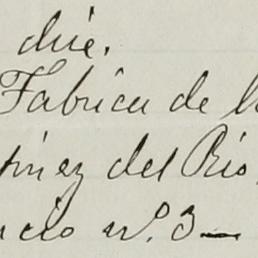 die.
Fabrica de l
tinez del Rio,
ncio nº. 3—